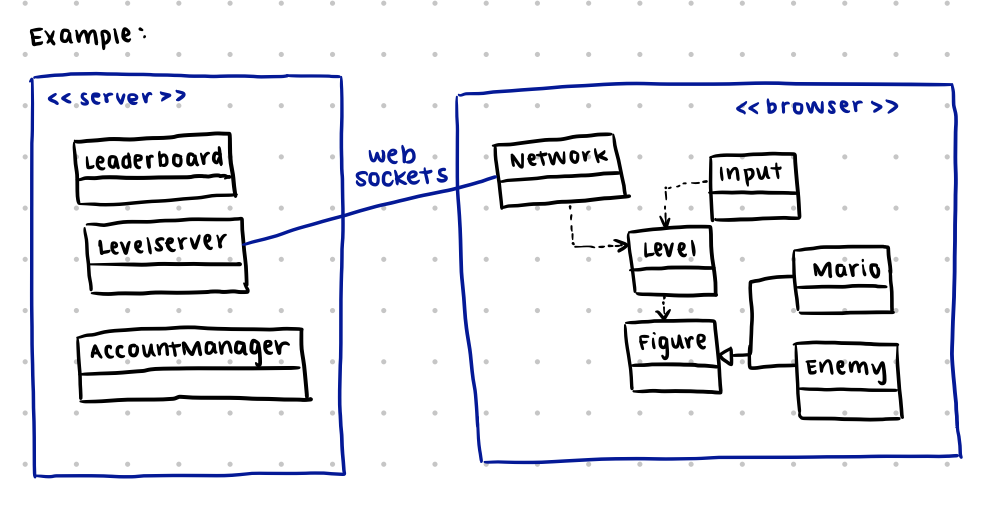 Example:
<<server>>
Leaderboard
Levelserver
AccountManager
web
sockets
<<browser>>
Network
Input
Level
Mario
Figure
Enemy